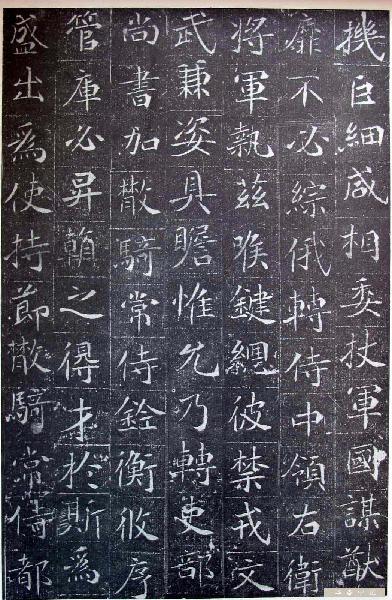 機巨細咸相委杖軍國謀猷
靡不必綜俄轉侍中領右衛
將軍執茲喉鍵綢彼禁戎文
武兼姿具瞻惟允乃轉吏部
尚書加散騎常侍銓衡攸序
管庫必昇之得才於斯為
盛出為使持節散騎常侍都